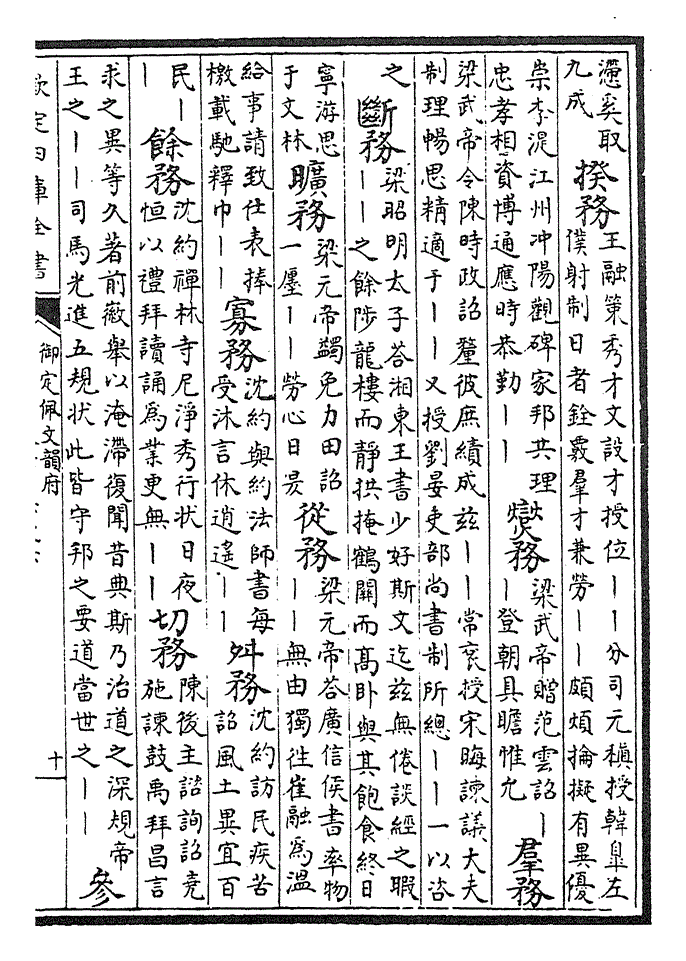 奚取
九成
揆務
王融策秀才文設才授位——分司元稹授韓臯左
僕射制日者銓覈羣才兼勞——頗煩掄擬有異優
崇李湜江州冲陽觀碑家邦共理
忠孝相資博通應時恭勤——
爕務
梁武帝贈范雲詔—
—登朝具瞻惟允
羣務
梁武帝令陳時政詔釐彼庶績成兹——常衮授宋晦諫議大夫
制理暢思精適于——又授劉晏吏部尚書制所總——一以咨
之
斷務
梁昭明太子荅湘東王書少好斯文迄兹無倦談經之暇
——之餘陟龍樓而靜拱掩鶴關而高卧與其飽食終日
寧游思
于文林
曠務
梁元帝蠲免力田詔
一廛——勞心日昃
從務
梁元帝荅廣信侯書率物
——無由獨徃崔融為温
給事請致仕表捧
檄載馳釋巾——
寡務
沈約與約法師書每
受沐言休逍遙——
舛務
沈約訪民疾苦
詔風土異宜百
民—
—
餘務
沈約禪林寺尼淨秀行狀日夜
恒以禮拜讀誦為業更無——
切務
陳後主諮詢詔堯
施諫鼓禹拜昌言
求之異等久著前徽舉以淹滯復聞昔典斯乃治道之深規帝
王之——司馬光進五規狀此皆守邦之要道當世之——
參
欽定四庫全書
御定佩文韻府
十